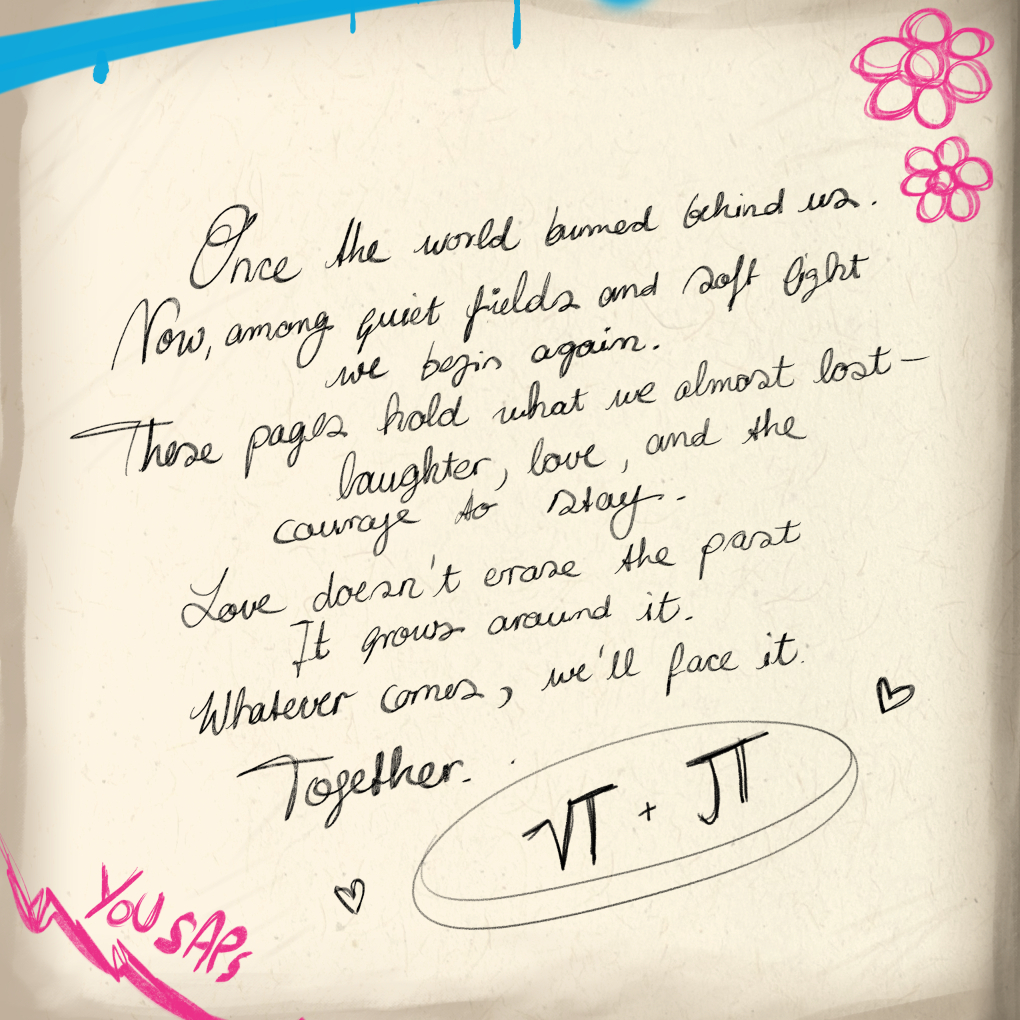 Once the world burned behind us.
Now, among quiet fields and soft light
we begin again.
These pages hold what we almost lost—
laughter, love, and the
courage to stay.
Love doesn't erase the past
It grows around it.
Whatever comes, we'll face it.
Together.
VT + JT
YOU SAPS